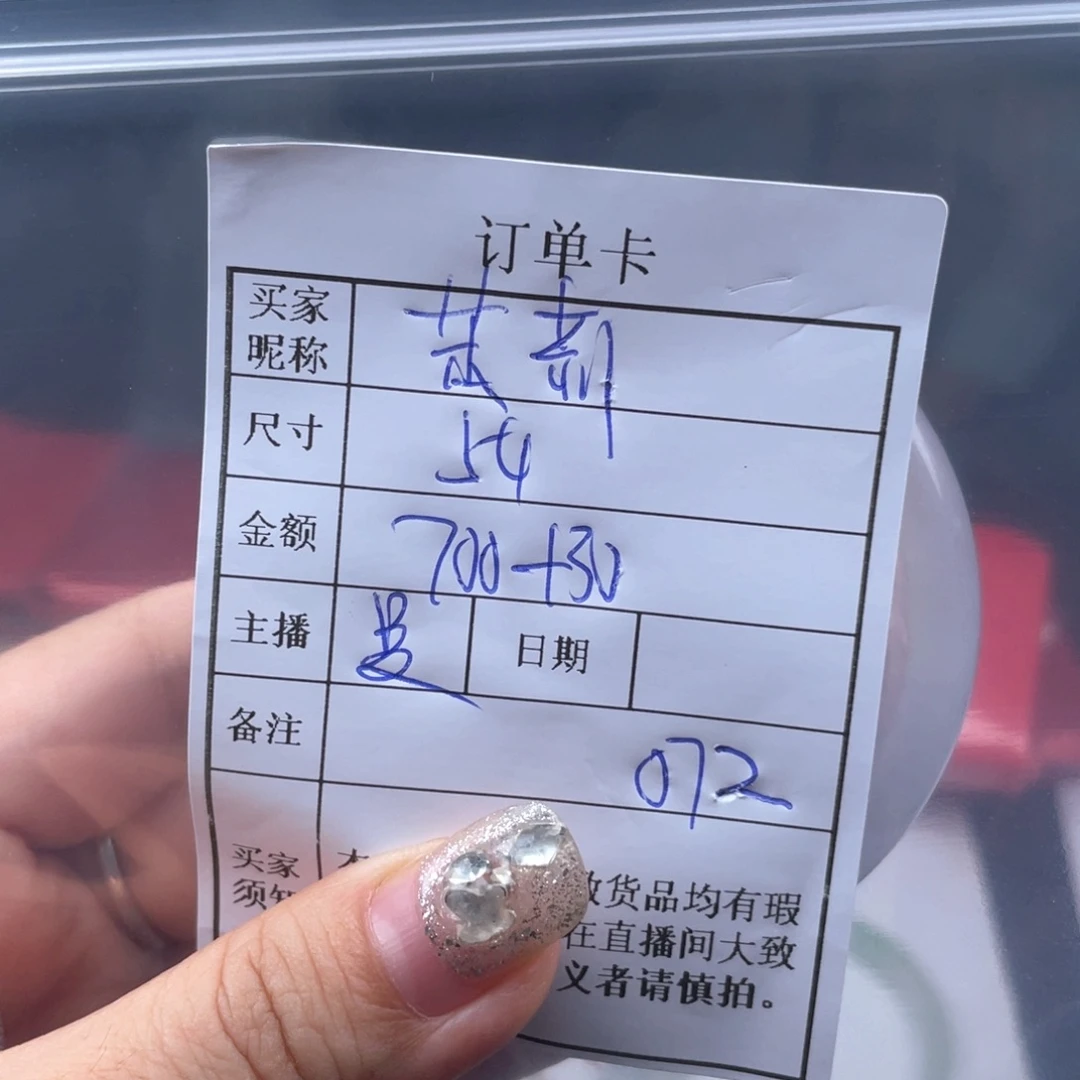 订单卡
买家昵称
尺寸 54
金额 700+30
主播 日期
备注 072
买家须知
货品均有瑕
在直播间大致
义者请慎拍。